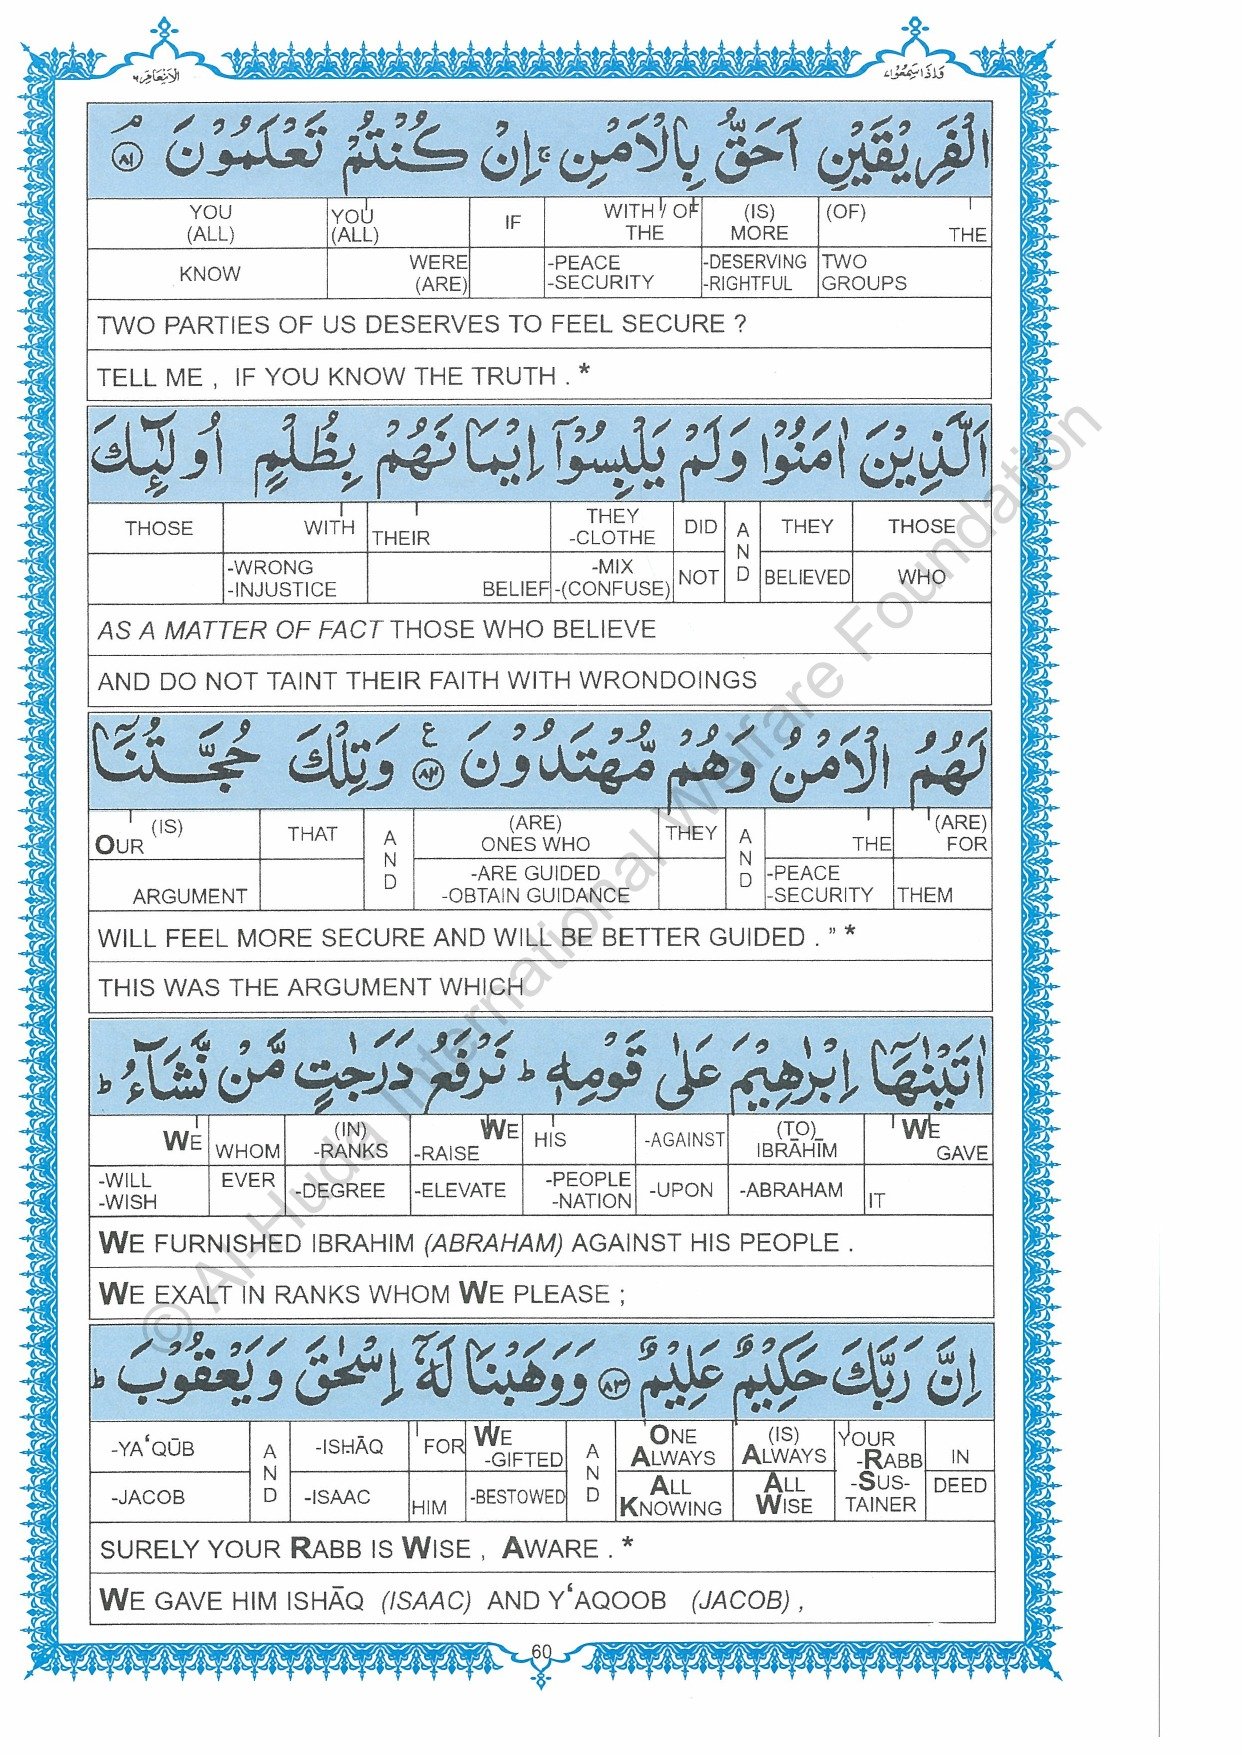 الانعام ٦
واذا سمعوا ٧
الْفَرِيْقَيْنِ اَحَقُّ بِالْاَمْنِ ۚ اِنْ كُنْتُمْ تَعْلَمُوْنَ ﴿٨١﴾ ۘ
YOU (ALL) YOU (ALL) IF WITH / OF THE (IS) MORE (OF) THE
KNOW WERE (ARE) -PEACE -SECURITY -DESERVING -RIGHTFUL TWO GROUPS
TWO PARTIES OF US DESERVES TO FEEL SECURE ?
TELL ME , IF YOU KNOW THE TRUTH . *
اَلَّذِيْنَ اٰمَنُوْا وَلَمْ يَلْبِسُوْٓا اِيْمَانَهُمْ بِظُلْمٍ اُولٰٓئِكَ
THOSE WITH THEIR THEY -CLOTHE DID AND THEY THOSE
-WRONG -INJUSTICE BELIEF -MIX -(CONFUSE) NOT BELIEVED WHO
AS A MATTER OF FACT THOSE WHO BELIEVE
AND DO NOT TAINT THEIR FAITH WITH WRONDOINGS
لَهُمُ الْاَمْنُ وَهُمْ مُّهْتَدُوْنَ ﴿٨٢﴾ ع وَتِلْكَ حُجَّتُنَآ
OUR (IS) THAT AND (ARE) ONES WHO THEY AND THE (ARE) FOR
ARGUMENT -ARE GUIDED -OBTAIN GUIDANCE -PEACE -SECURITY THEM
WILL FEEL MORE SECURE AND WILL BE BETTER GUIDED . ” *
THIS WAS THE ARGUMENT WHICH
اٰتَيْنٰهَآ اِبْرٰهِيْمَ عَلٰى قَوْمِهٖ ؕ نَرْفَعُ دَرَجٰتٍ مَّنْ نَّشَآءُ ؕ
WE WHOM (IN) -RANKS WE -RAISE HIS -AGAINST (TO) IBRĀHĪM WE GAVE
-WILL -WISH EVER -DEGREE -ELEVATE -PEOPLE -NATION -UPON -ABRAHAM IT
WE FURNISHED IBRAHIM (ABRAHAM) AGAINST HIS PEOPLE .
WE EXALT IN RANKS WHOM WE PLEASE ;
اِنَّ رَبَّكَ حَكِيْمٌ عَلِيْمٌ ﴿٨٣﴾ وَوَهَبْنَا لَهٗٓ اِسْحٰقَ وَيَعْقُوْبَ ؕ
-YA‘QŪB AND -ISHĀQ FOR WE -GIFTED AND ONE ALWAYS (IS) ALWAYS YOUR -RABB IN
-JACOB -ISAAC HIM -BESTOWED ALL KNOWING ALL WISE -SUS- TAINER DEED
SURELY YOUR RABB IS WISE , AWARE . *
WE GAVE HIM ISHĀQ (ISAAC) AND Y‘AQOOB (JACOB) ,
60
© Al-Huda International Welfare Foundation